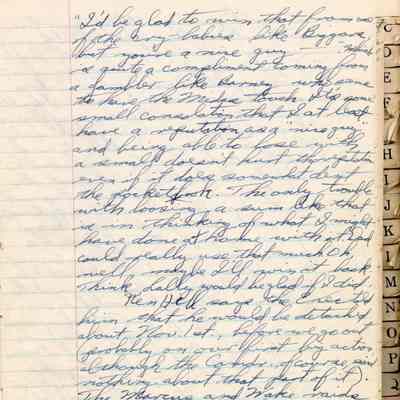 "I'd be glad to win that from one
of the cry-babies like Biggars,
but you're a nice guy —" Which
is quite a compliment coming from
a gambler like Barney who seems
to have the Midas touch. It's some
small consolation that I at least
have a reputation as a "nice guy"
and being able to lose with
a smile doesn't hurt the reputation
even if it does somewhat dent
the pocketbook. The only trouble
with loosing a sum like that
is in thinking of what I might
have done at home with it. Dad
could really use that much. Oh
well maybe I'll win it back.
Think Dally would be glad if I did.
Ken Hill says the Exec told
him that he would be detached
about Nov. 1st, before we go out
(probably on our first big action
although the Comdr, of course, said
nothing about that part of it).
The Marcus and Wake raids
C
D
E
F
H
I
J
K
L
M
N
O
P
Q